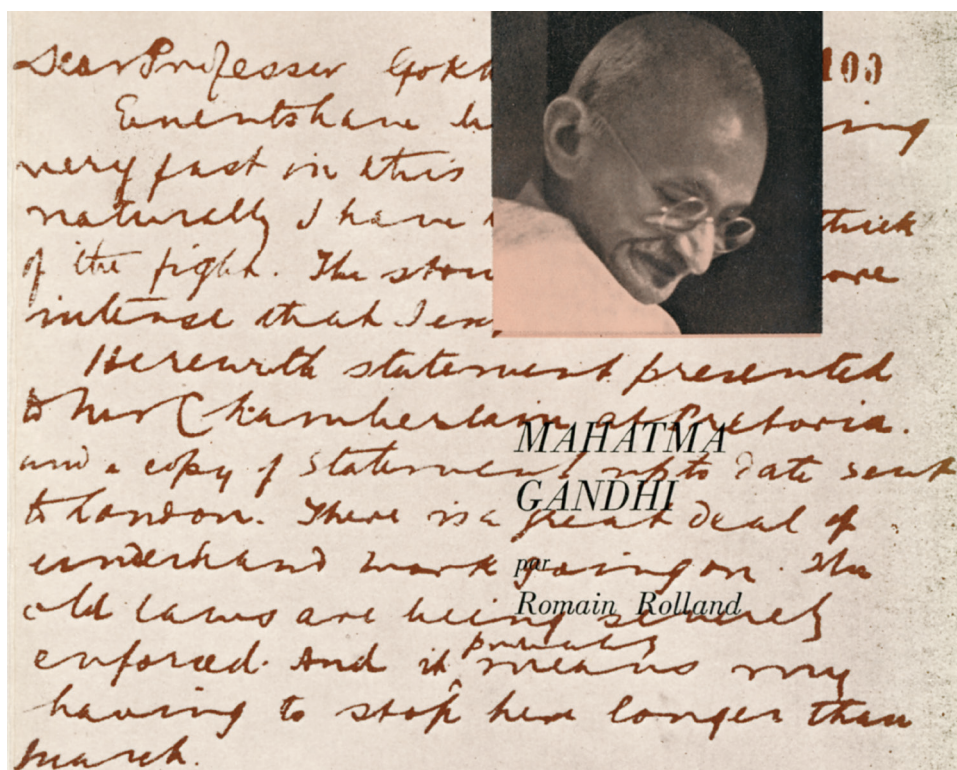 Dear Professor Gokh
100
Events have
ing
very fast in this
naturally I have
thick
of the fight. The
ore
intense that I
Herewith statement presented
to Mr Chamberlain at Pretoria.
and a copy of statement up to date sent
to London. There is a great deal of
underhand work going on. The
old laws are being severely
enforced. And it probably means my
having to stop here longer than
March.
MAHATMA
GANDHI
par
Romain Rolland